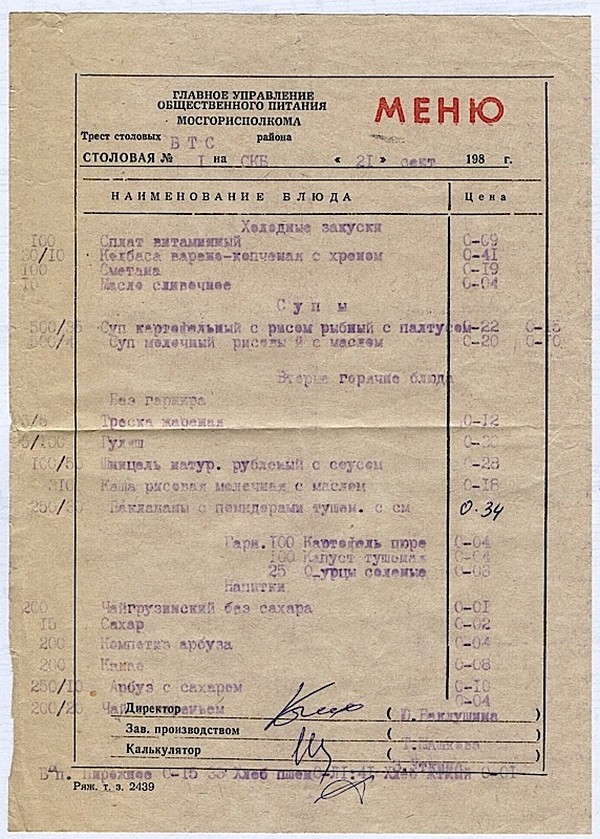 ГЛАВНОЕ УПРАВЛЕНИЕ
ОБЩЕСТВЕННОГО ПИТАНИЯ
МОСГОРИСПОЛКОМА
МЕНЮ
Трест столовых ВТС района
СТОЛОВАЯ № I на СКБ « 21 » сент 198 г.
НАИМЕНОВАНИЕ БЛЮДА Цена
Холодные закуски
100 Сплат витаминный 0-09
30/10 Колбаса варено-копченая с хреном 0-41
100 Сметана 0-19
10 Масло сливочное 0-04
Супы
500/35 Суп картофельный с рисом рыбный с палтусом 0-22 0-15
500/4 Суп молочный рисовый с маслом 0-20 0-10
Вторые горячие блюда
Без гарнира
Треска жареная 0-12
Гуляш 0-20
100/50 Шницель натур. рубленый с соусом 0-28
310 Каша рисовая молочная с маслом 0-18
250/30 Баклажаны с помидорами тушен. с см 0-34
Гарн. 100 Картофель пюре 0-04
100 Капуст тушеная 0-04
25 О урцы соленые 0-03
Напитки
200 Чайгрузинский без сахара 0-01
15 Сахар 0-02
200 Компотиз арбуза 0-04
200 Какао 0-08
250/10 Арбуз с сахаром 0-10
200/20 Чай 0-04
Директор ( Ю. Баклушина )
Зав. производством ( )
Калькулятор ( )
Пирожное 0-15 33 Хлеб 0-01
Ряж. т. з. 2439